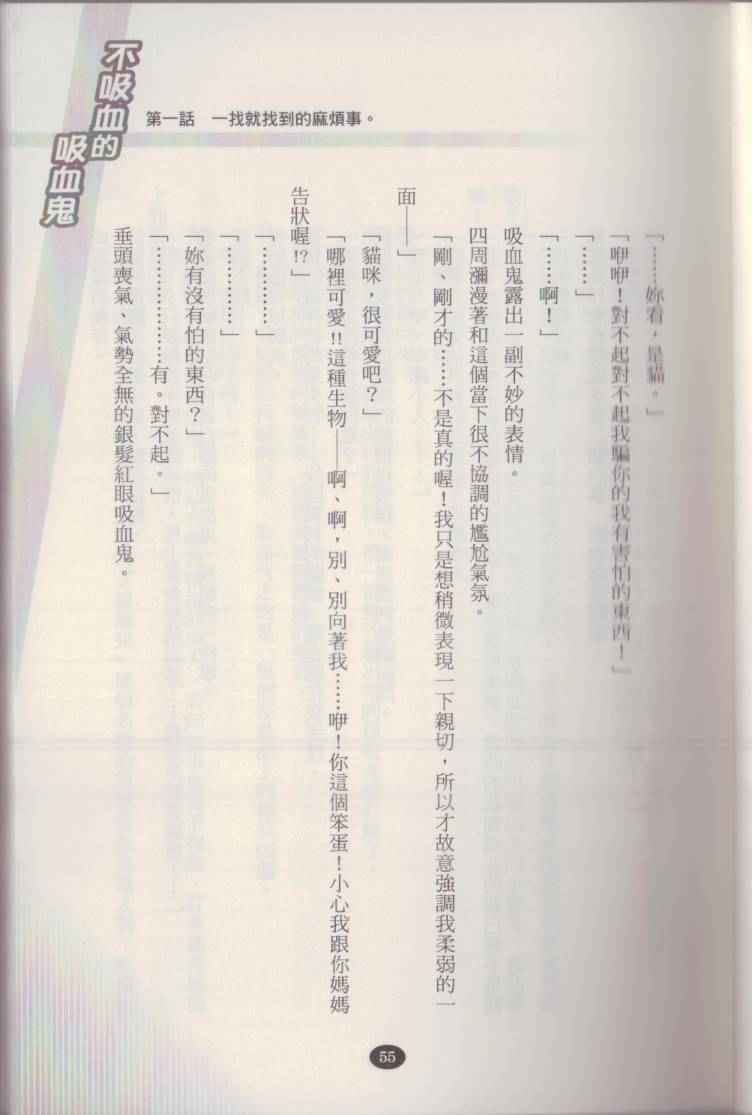 不吸血的
吸血鬼
第一話　一找就找到的麻煩事。
「……妳看，是貓。」
「咿咿！對不起對不起我騙你的我有害怕的東西！」
「……」
「……啊！」
吸血鬼露出一副不妙的表情。
四周瀰漫著和這個當下很不協調的尷尬氣氛。
「剛、剛才的……不是真的喔！我只是想稍微表現一下親切，所以才故意強調我柔弱的一
面——」
「貓咪，很可愛吧？」
「哪裡可愛!!這種生物——啊、啊，別、別向著我……咿！你這個笨蛋！小心我跟你媽媽
告狀喔!?」
「…………」
「…………」
「妳有沒有怕的東西？」
「………………有。對不起。」
垂頭喪氣、氣勢全無的銀髮紅眼吸血鬼。
55